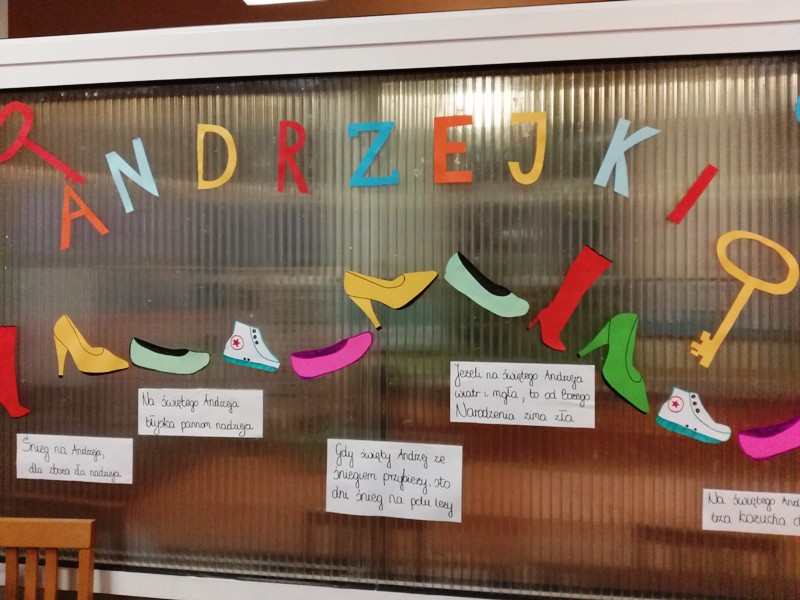 ANDRZEJKI
Śnieg na Andrzeja,
dla zboża zła nadzieja
Na świętego Andrzeja
błyska pannom nadzieja
Gdy święty Andrzej ze
śniegiem przybieży, sto
dni śnieg na polu leży
Jeżeli na świętego Andrzeja
wiatr i mgła, to od Bożego
Narodzenia zima zła
Na świętego
trza kożucha